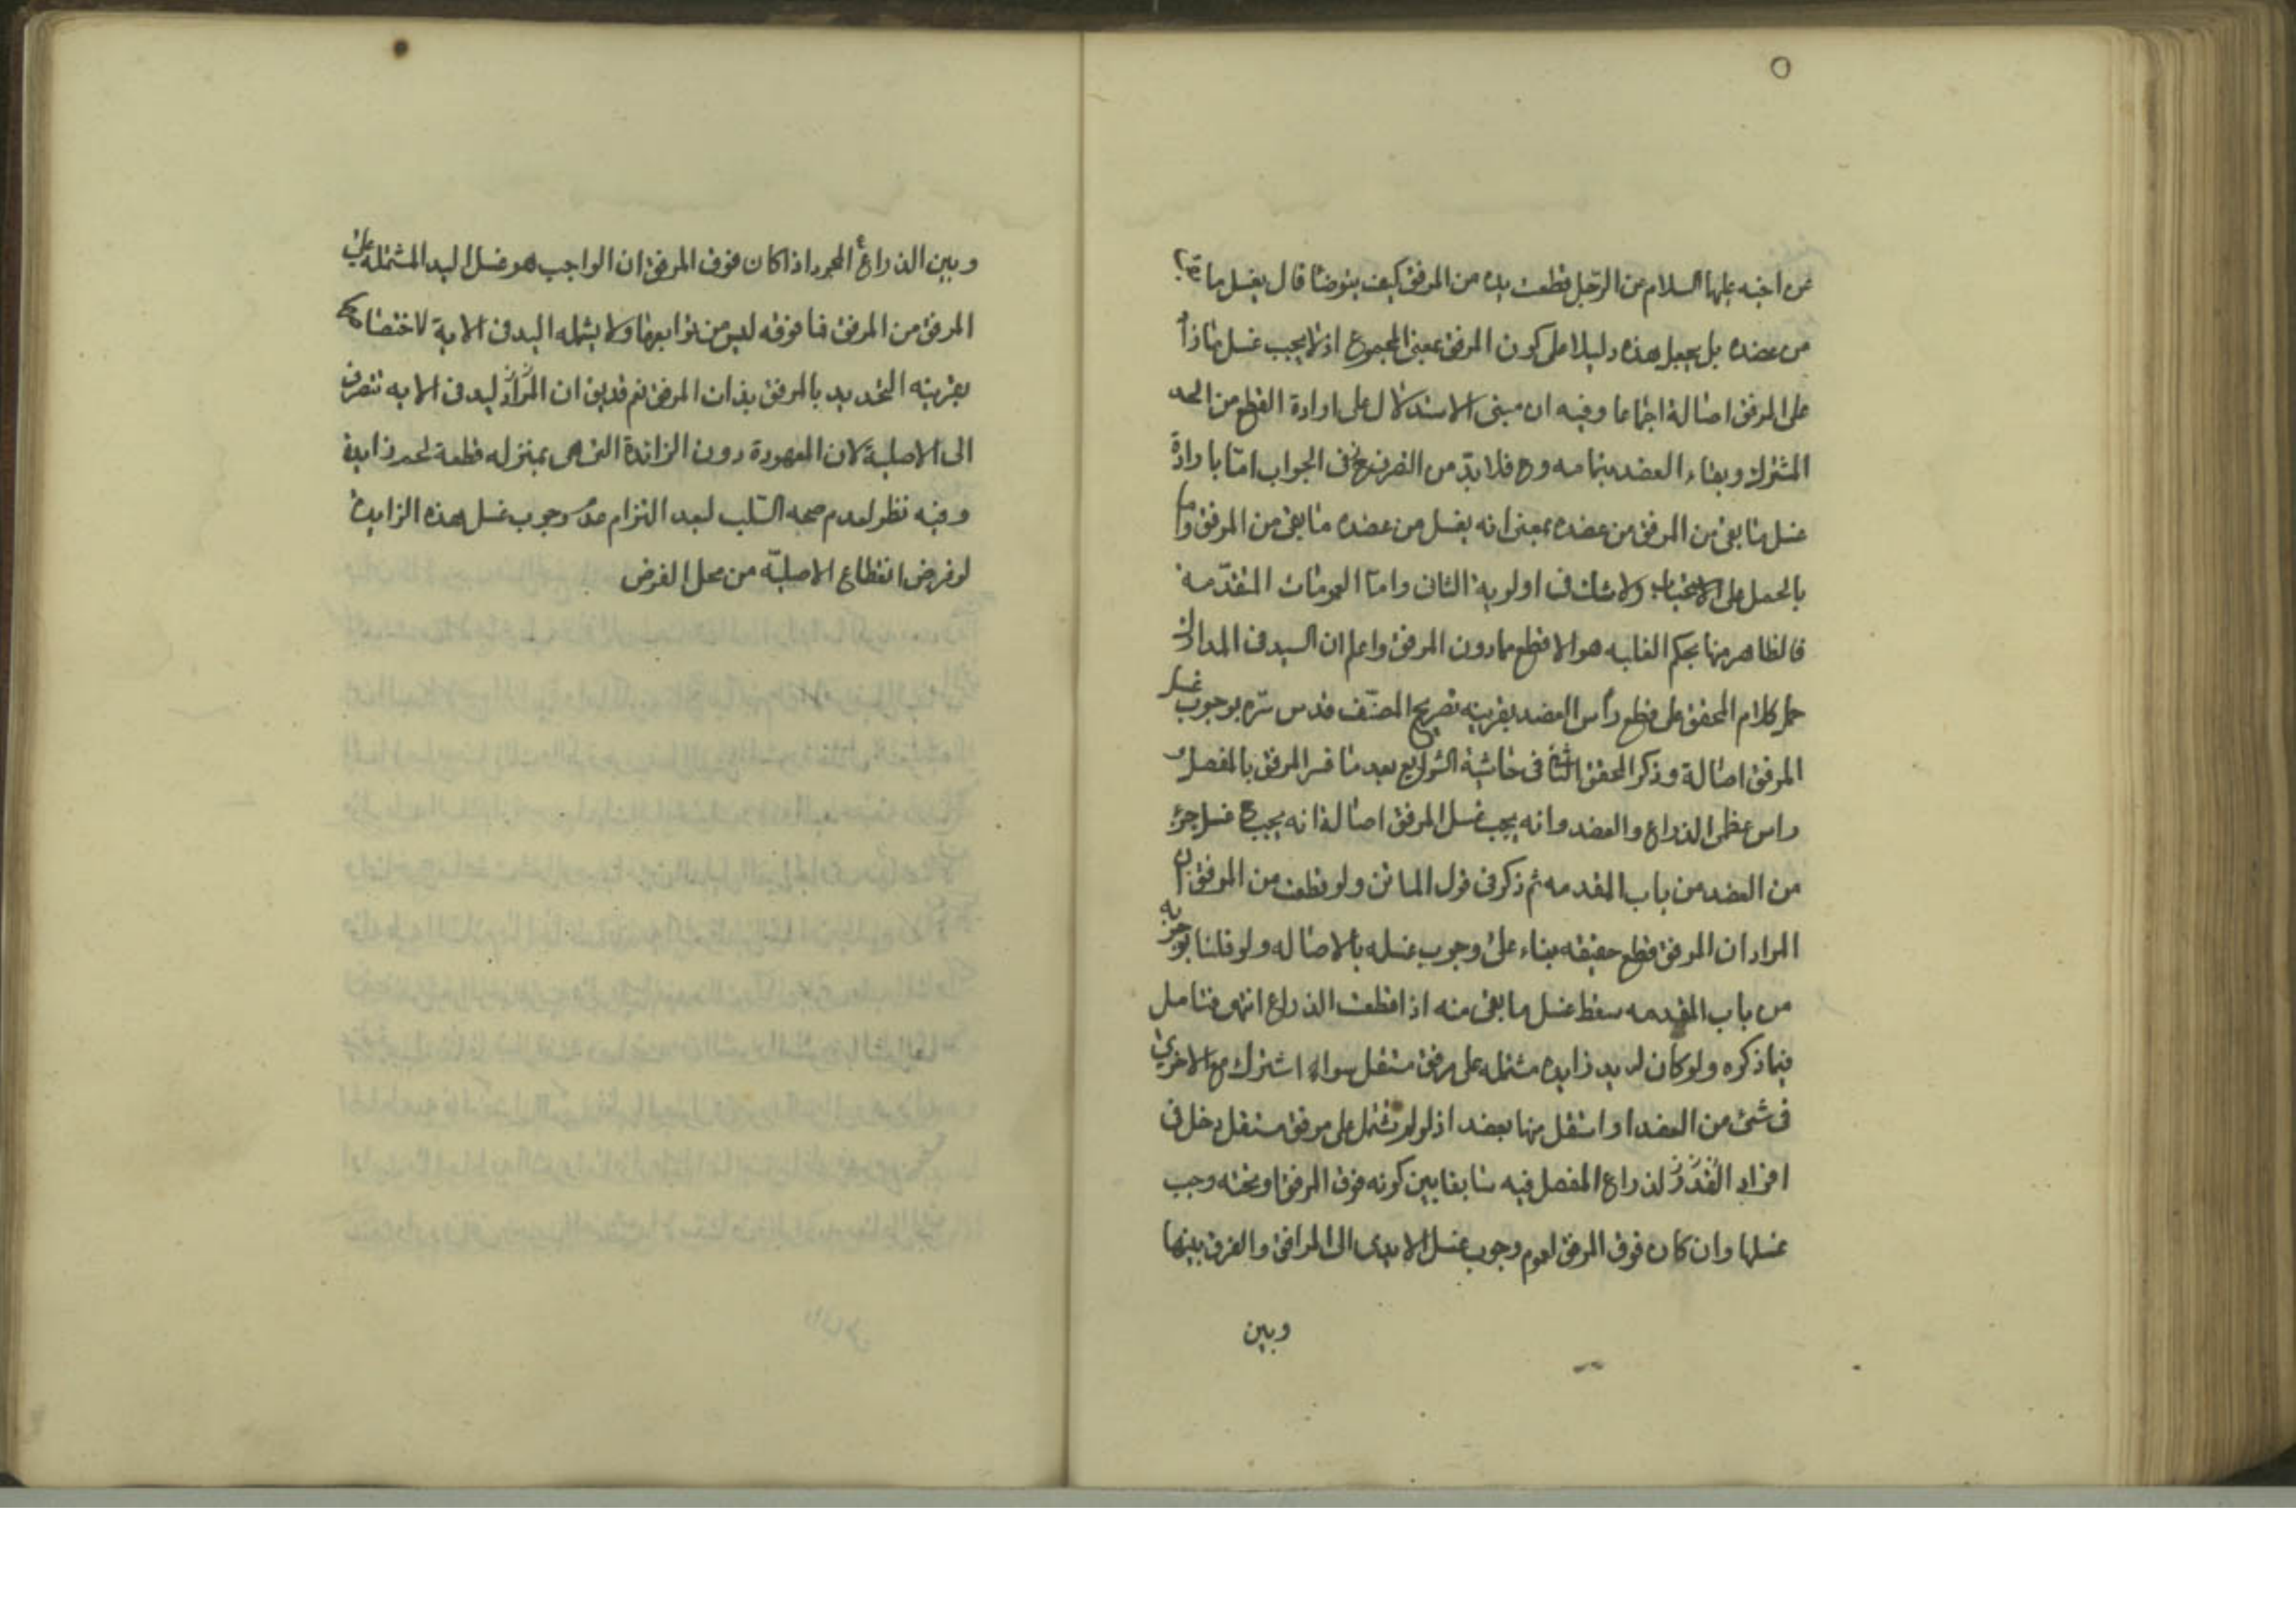 عن اخيه عليهما السلام عن الرجل قطعت يده من المرفق كيف يتوضأ قال يغسل ما بقى
من عضده بل يجعل هذه دليلا على كون المرفق بمعنى المجموع اذ لا يجب غسل ما زاد
على المرفق اصالة اجماعا وفيه ان مبنى الاستدلال على ارادة القطع من الحد
المشترك وبقاء العضد بتمامه وح فلا بد من التصرف فى الجواب اما بارادة
غسل ما بقى من المرفق من عضده بمعنى انه يغسل من عضده ما بقى من المرفق واما
بالحمل على الاستحباب ولا شك فى اولوية الثانى واما العمومات المتقدمة
فالظاهر منها بحكم الغلبه هو الاقطع مما دون المرفق واعلم ان السيد فى المدارك
حمل كلام المحقق على قطع رأس العضد بقرينه تصريح المصنف قدس سره بوجوب غسل
المرفق اصالة وذكر المحقق الثانى فى حاشية الشرايع بعد ما فسر المرفق بالمفصل
راس عظمى الذراع والعضد وانه يجب غسل المرفق اصالة انه يجب ح غسل جزء
من العضد من باب المقدمه ثم ذكر فى قول الماتن ولو قطعت من المرفق ان
المراد ان المرفق قطع حقيقه بناء على وجوب غسله بالاصاله ولو قلنا بوجوبه
من باب المقدمه سقط غسل ما بقى منه اذا قطعت الذراع انتهى فتامل
فيما ذكره ولو كان له يد زايده مشتمله على مرفق مستقل سواء اشترك مع الاخرى
فى شئ من العضد او استقل منها بعضد اذ لو لم تشتمل على مرفق مستقل دخل فى
افراد الذراع المفصل فيه سابقا بين كونه فوق المرفق او تحته وجب
غسلها وان كان فوق المرفق لعموم وجوب غسل الايدى الى المرافق والفرق بينها
وبين
وبين الذراع المجرد اذا كان فوق المرفق ان الواجب هو غسل اليد المشتمله على
المرفق من المرفق فما فوقه ليس من توابعها ولا يشمله اليد فى الاية لاختصاص
بقرينه التحديد بالمرفق بذات المرفق نعم قد يق ان المراد ليد فى الايه تنصرف
الى الاصلية لان المعهودة دون الزائدة التى هى بمنزله قطعة لحم زايدة
وفيه نظر لعدم صحه السلب لبعد التزام عدم وجوب غسل هذه الزايدة
لو فرض انقطاع الاصلية من محل الفرض